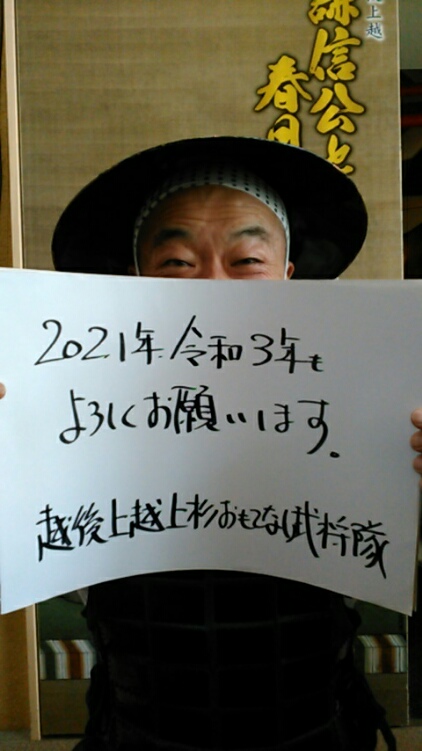 上越
謙信公と
春日
2021年 令和3年も
よろしくお願いします.
越後上越上杉おもてなし武将隊